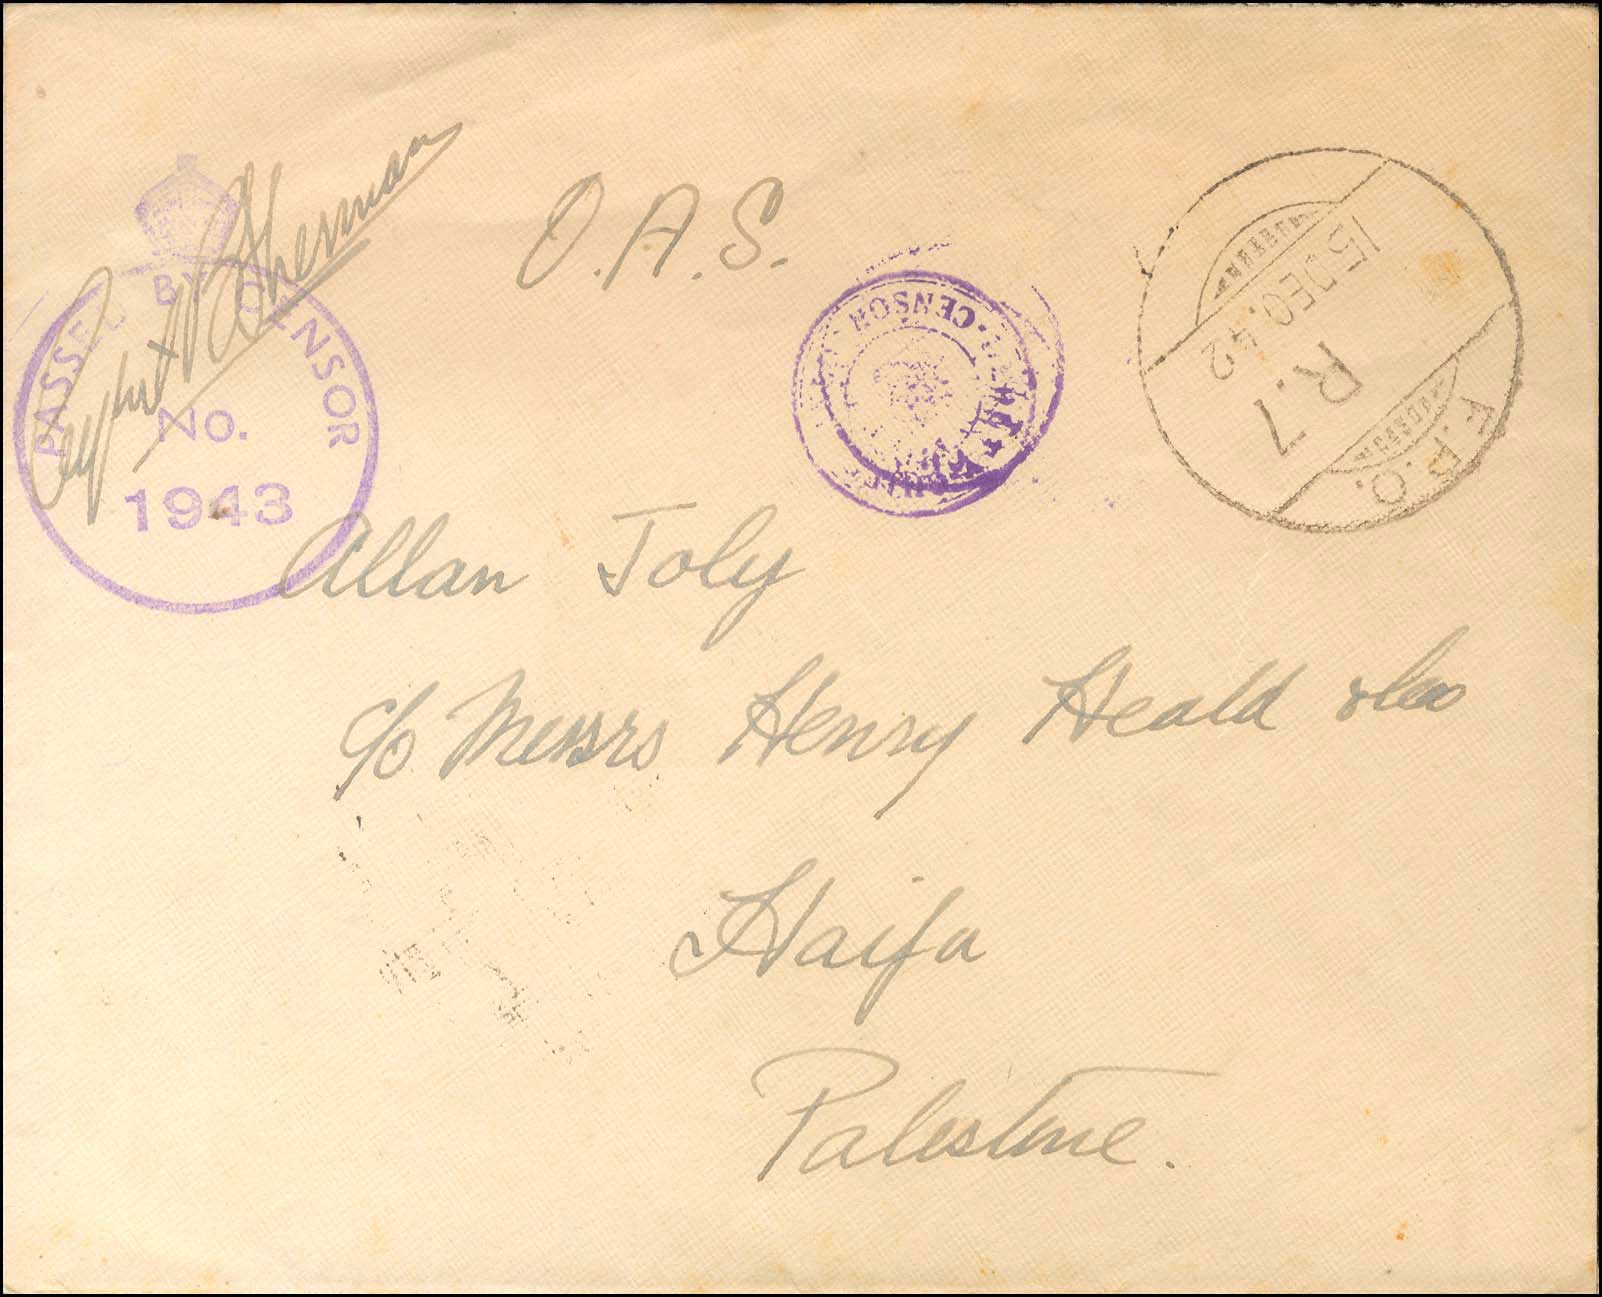 O.A.S.
PASSED BY CENSOR
No.
1943
CENSOR
F.P.O.
15 DEC. 42
R.7
Allan Joly
c/o Messrs Henry Heald & Co
Haifa
Palestine.